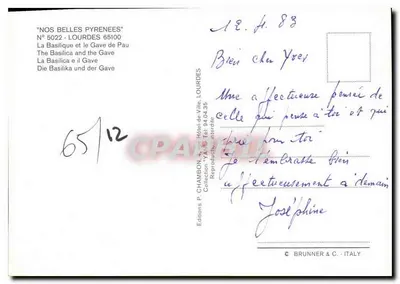 "NOS BELLES PYRENEES"
N° 5022 - LOURDES 65100
La Basilique et le Gave de Pau
The Basilica and the Gave
La Basilica e il Gave
Die Basilika und der Gave
65/12
Editions P. CHAMBON, Hôtel-de-Ville, LOURDES
Collection "YA" Tél. 94.04.35
Reproduction interdite
12.4.83
Bien cher Yves
Une affectueuse pensée de
celle qui pense à toi et qui
prie pour toi
Je t'embrasse bien
affectueusement à demain
Joséphine
© BRUNNER & C. - ITALY